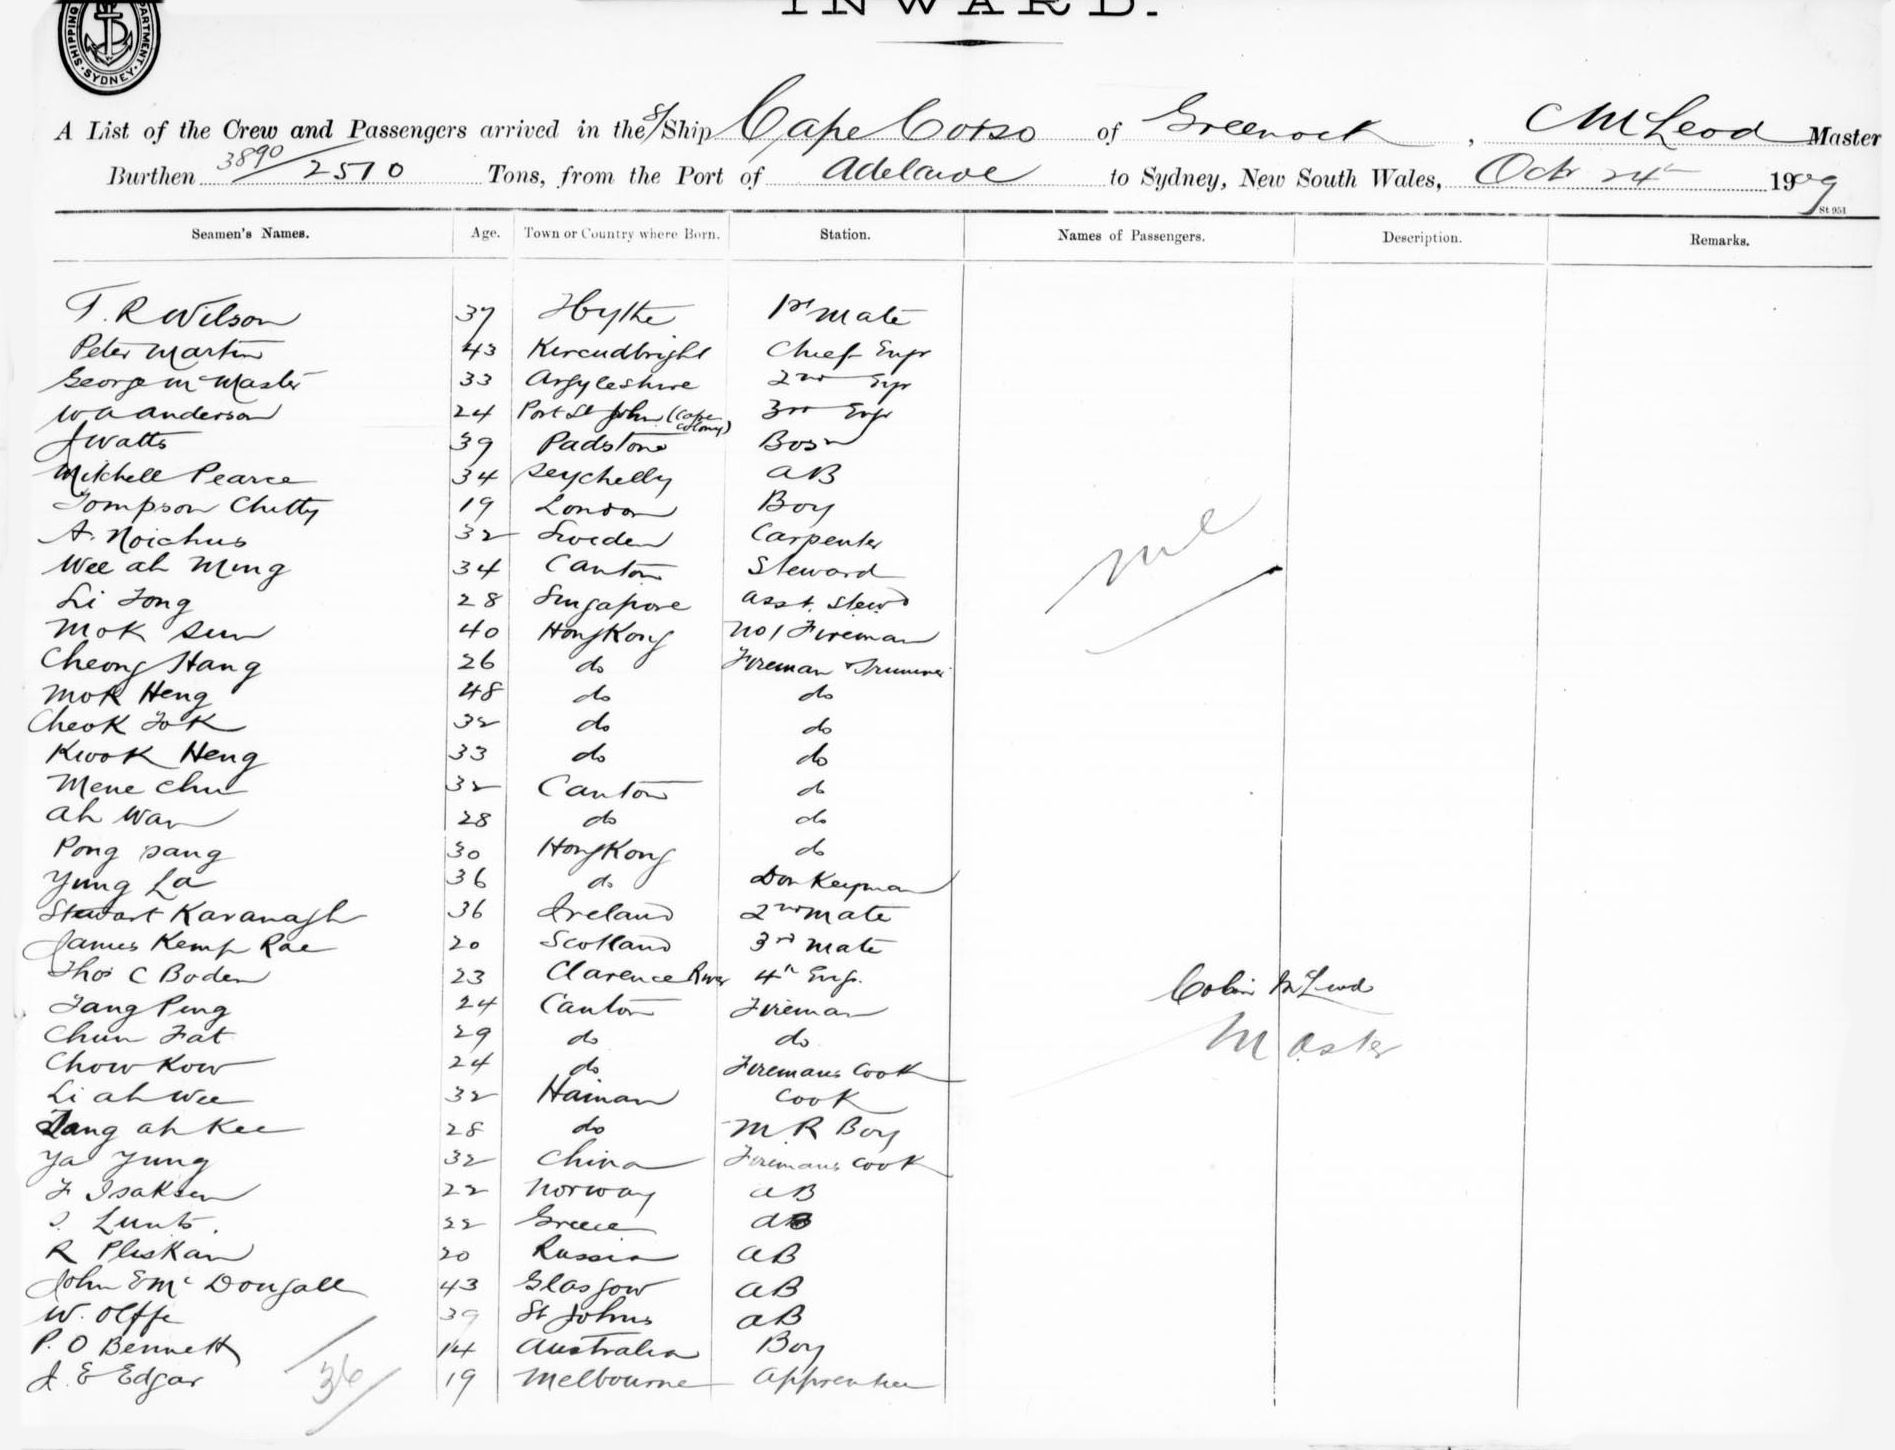 INWARD.
SHIPPING DEPARTMENT. SYDNEY.
A List of the Crew and Passengers arrived in the S/Ship Cape Corso of Greenock, C McLeod Master
Burthen 3890/2510 Tons, from the Port of Adelaide to Sydney, New South Wales, Oct 24th 1909
St 951
Seamen's Names. Age. Town or Country where Born. Station. Names of Passengers. Description. Remarks.
T. R Wilson 37 Hythe 1st Mate
Peter Martin 43 Kircudbright Chief Engr
George McMaster 33 Argyleshire 2nd Egr
W A Anderson 24 Port St John (Cape Colony) 3rd Engr
J Watts 39 Padstone Bosn
Mitchell Pearce 34 Seychelly AB
Tompson Chitty 19 London Boy
A. Noichus 32 Sweden Carpenter
Wee ah Ming 34 Canton Steward
Li Fong 28 Singapore Asst. Stewd
Mok Sun 40 HongKong No 1 Fireman
Cheong Hang 26 do Fireman & Trimmer
Mok Heng 48 do do
Cheok Fok 32 do do
Kwok Heng 33 do do
Mene Chu 32 Canton do
Ah Wan 28 do do
Pong Sang 30 HongKong do
Yung La 36 do Donkeyman
Stewart Kavanagh 36 Ireland 2nd Mate
James Kemp Rae 20 Scotland 3rd Mate
Thos C Boden 23 Clarence River 4th Eng.
Colin McLeod
Fang Ping 24 Canton Fireman
Chun Fat 29 do do
Master
Chow Kow 24 do Firemans Cook
Li ah Wee 32 Hainan Cook
ang ah Kee 28 do M. R Boy
Ya Yung 32 China Firemans Cook
F Isaksen 22 Norway AB
Lunts. 22 Greece AB
R Pliskan 20 Russia AB
John E McDougall 43 Glasgow AB
W. Olffe 39 St Johns AB
P. O Bennett 14 Australia Boy
J. E Edgar 19 Melbourne Apprentice
36